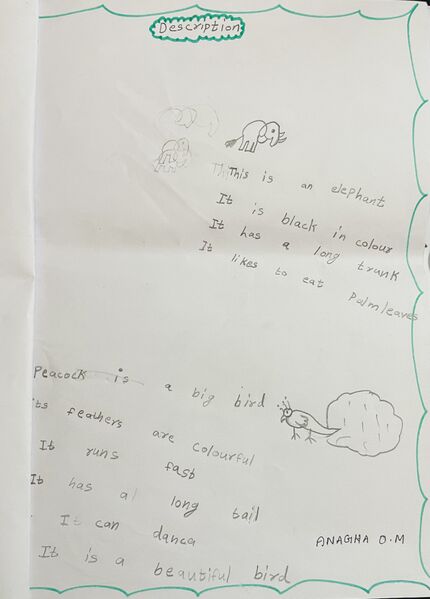 Description
This is an elephant
It is black in colour
It has a long trunk
It likes to eat Palm leaves
Peacock is a big bird
its feathers are colourful
It runs fast
It has a long tail
It can danca
It is a beautiful bird
ANAGHA O.M